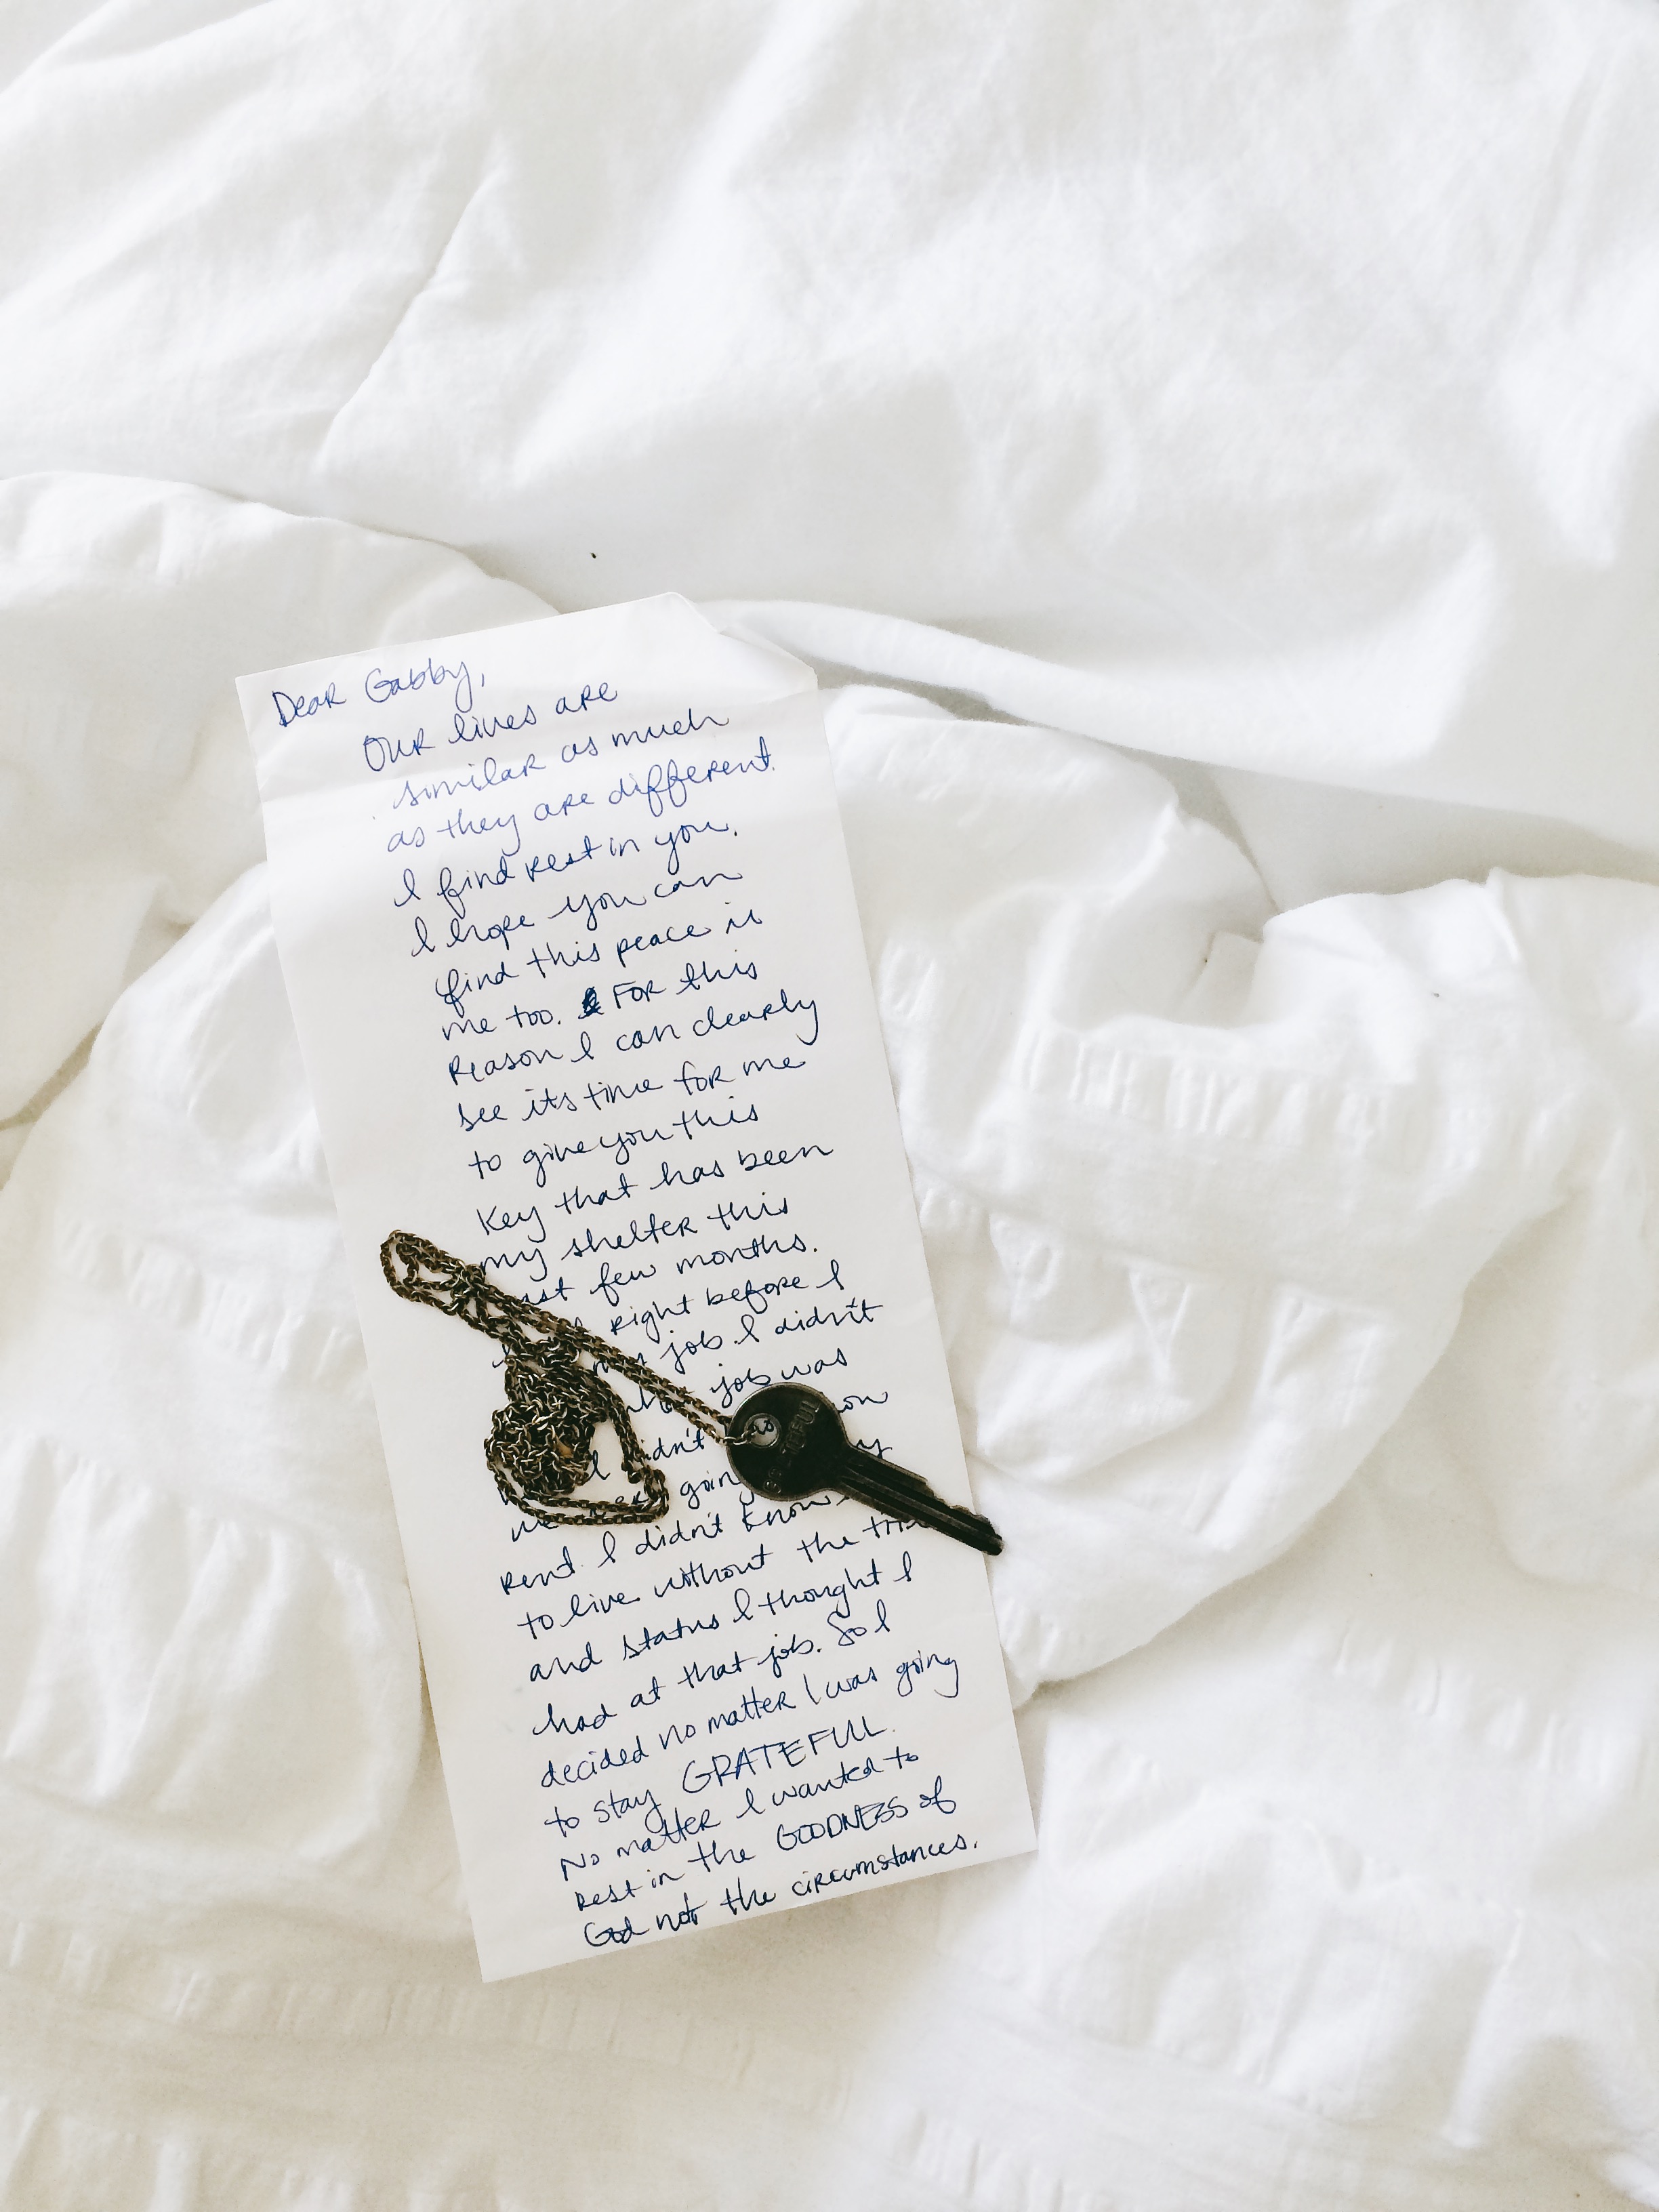 Dear Gabby,
Our lives are
similar as much
as they are different.
I find rest in you.
I hope you can
find this peace in
me too. For this
reason I can clearly
see its time for me
to give you this
Key that has been
my shelter this
few months.
right before I
job I didn't
job was
didn't
going
rent. I didn't know
to live without the
and status I thought I
had at that job. So I
decided no matter I was going
to stay GRATEFUL.
No matter I wanted to
rest in the GOODNESS of
God not the circumstances.